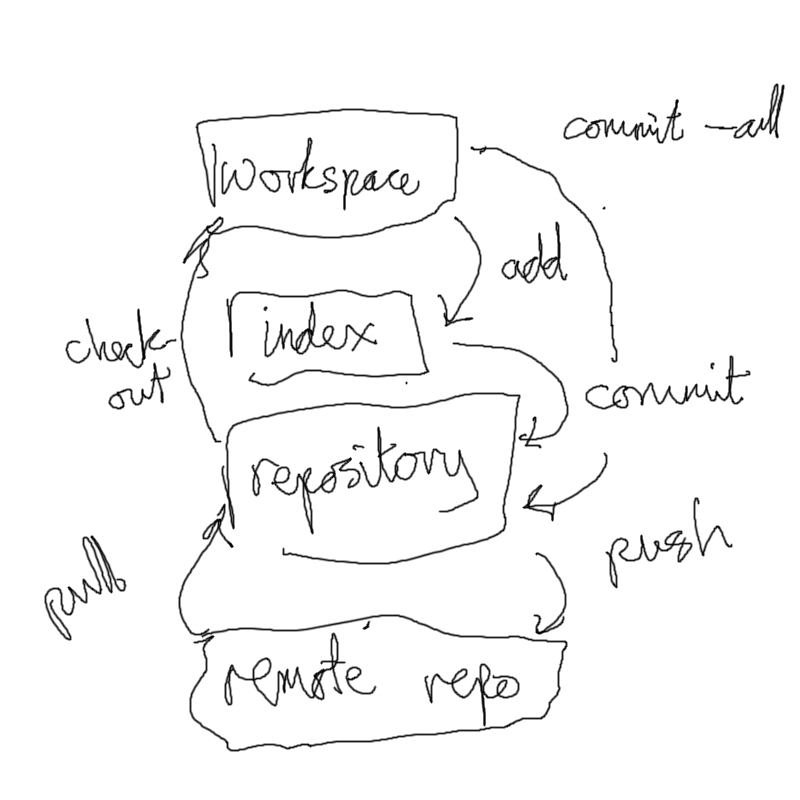 commit -all
workspace
add
index
check-
out
commit
repository
push
pull
remote repo